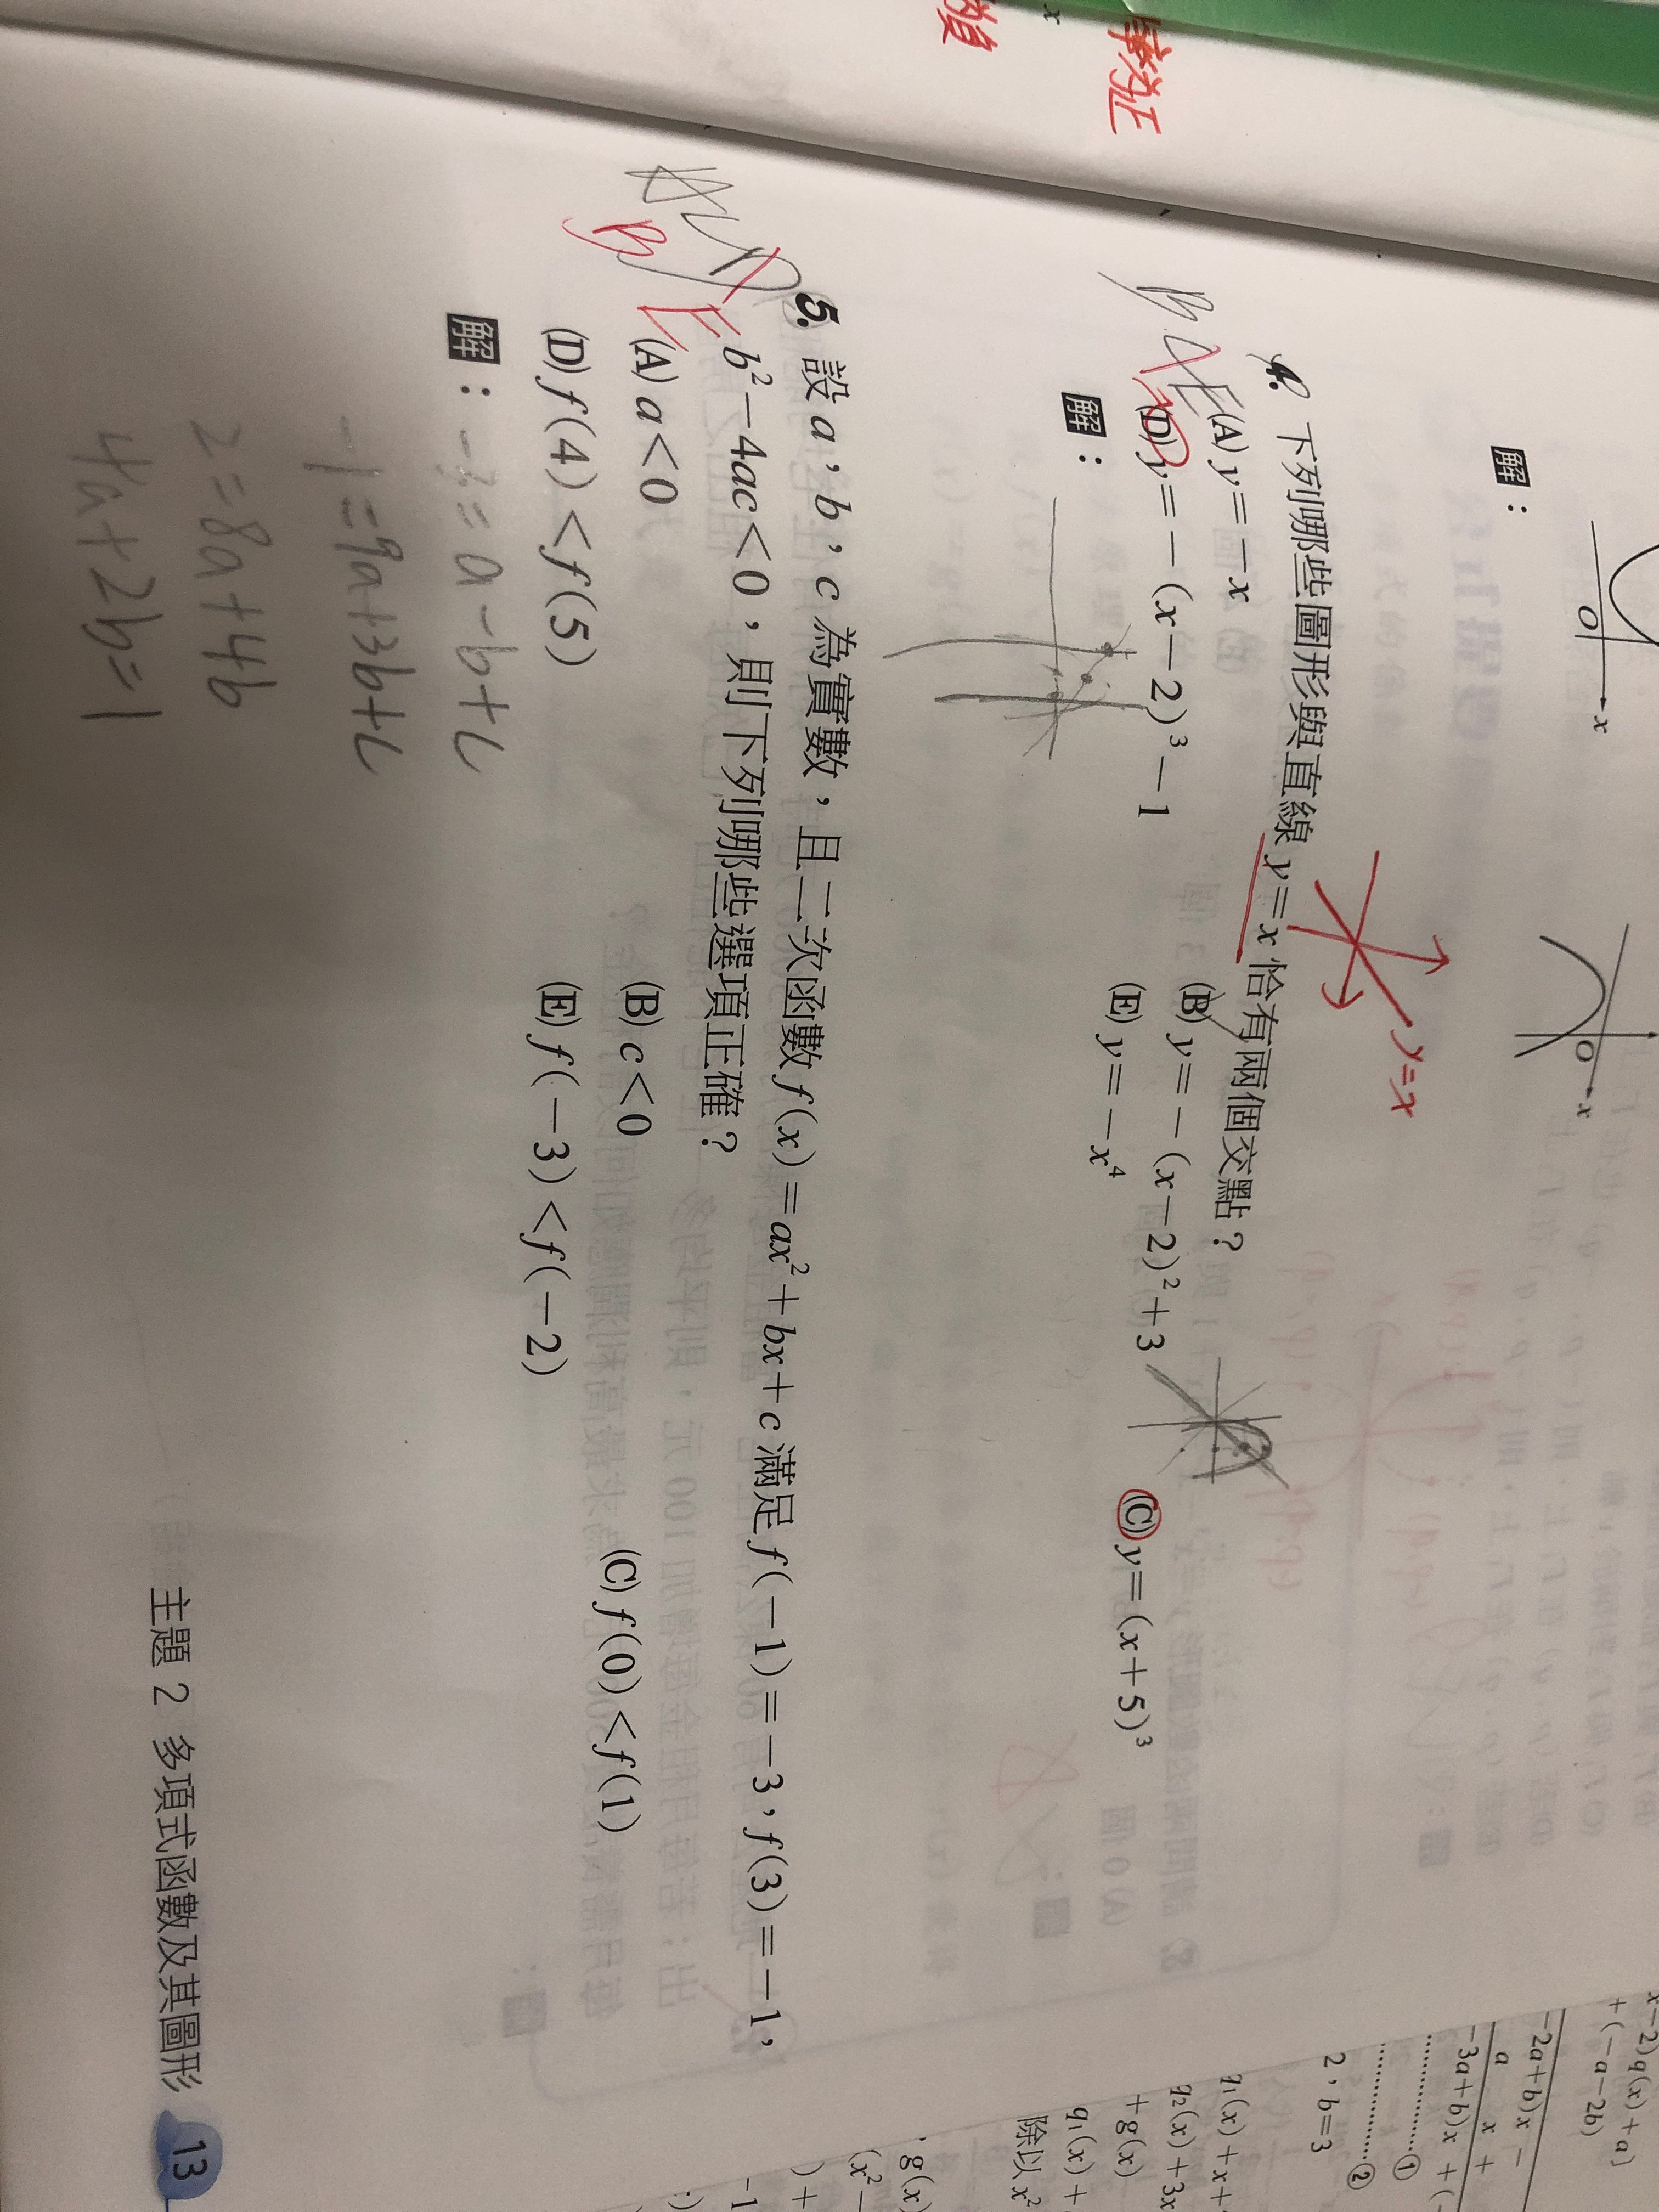 解：
O
x
O
x
y=x
4. 下列哪些圖形與直線 y=x 恰有兩個交點？
(A) y=-x
(B) y=-(x-2)²+3
(C) y=(x+5)³
(D) y=-(x-2)³-1
(E) y=-x⁴
解：
5. 設 a，b，c 為實數，且二次函數 f(x)=ax²+bx+c 滿足 f(-1)=-3，f(3)=-1，
b²-4ac<0，則下列哪些選項正確？
(A) a<0
(B) c<0
(C) f(0)<f(1)
(D) f(4)<f(5)
(E) f(-3)<f(-2)
解：-3=a-b+c
-1=9a+3b+c
2=8a+4b
4a+2b=1
主題 2 多項式函數及其圖形 13
x-2)q(x)+a)
+(-a-2b)
-2a+b)x-
a x+
-3a+b)x+(-
①
②
2，b=3
q₁(x)+x+
q₂(x)+3x
+g(x)
q₁(x)+
除以 x²
g(x)
(x²-
)+
-1